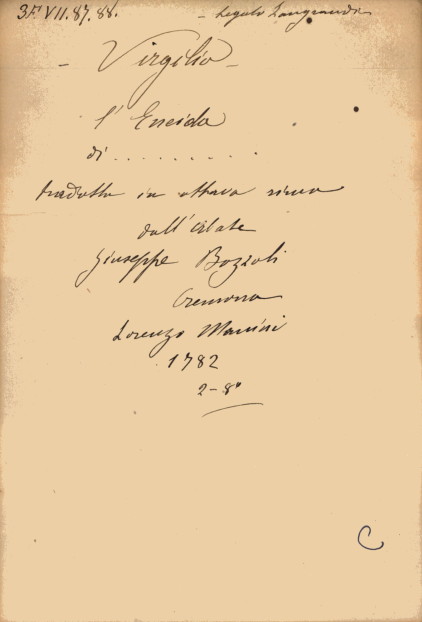 3.F.VII.87.88. - Legato Langrandi
- Virgilio -
l'Eneida
di . . . . . . . . .
tradotta in ottava rima
dall'abate
Giuseppe Bozzoli
Cremona
Lorenzo Manini
1782
2-8°
C